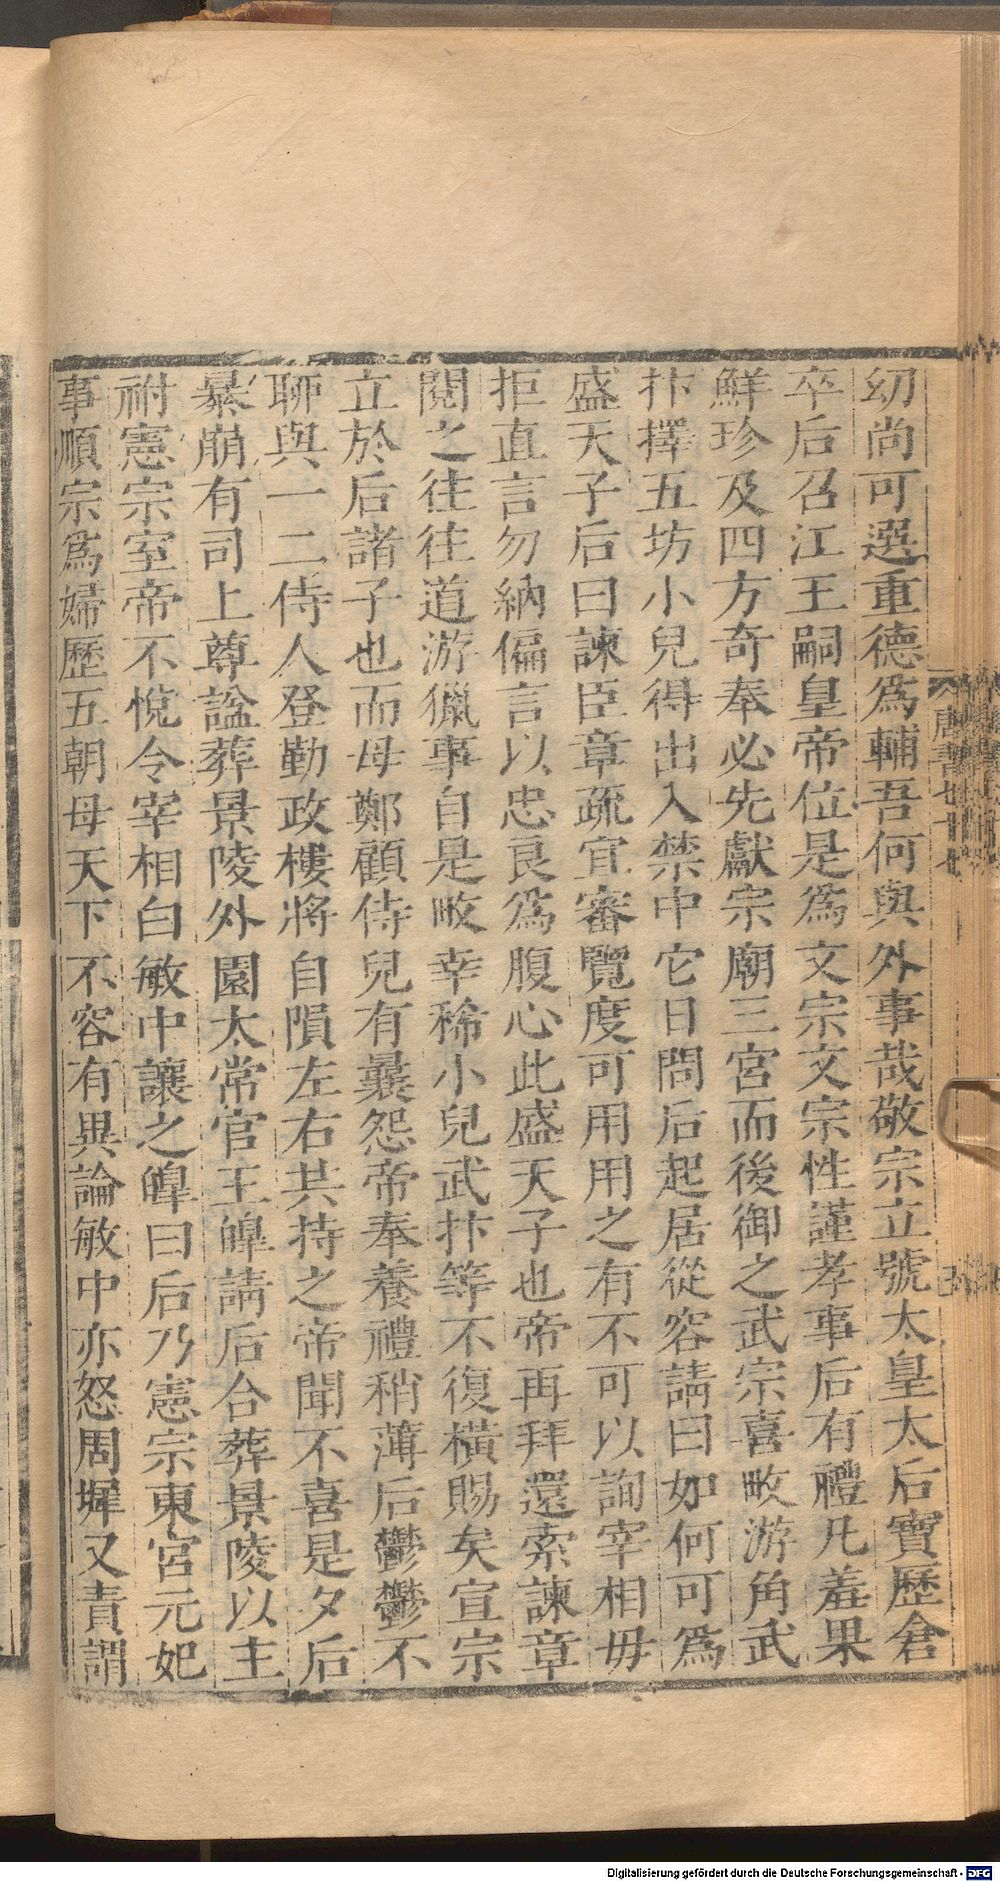 幼尚可選重德爲輔吾何與外事哉敬宗立號太皇太后寶歷倉
卒后召江王嗣皇帝位是爲文宗文宗性謹孝事后有禮凡羞果
鮮珍及四方奇奉必先獻宗廟三宮而後御之武宗喜畋游角武
抃擇五坊小兒得出入禁中它日問后起居從容請曰如何可爲
盛天子后曰諫臣章疏宜審覽度可用用之有不可以詢宰相毋
拒直言勿納偏言以忠良爲腹心此盛天子也帝再拜還索諫章
閱之往往道游獵事自是畋幸稀小兒武抃等不復橫賜矣宣宗
立於后諸子也而母鄭顧侍兒有曩怨帝奉養禮稍薄后鬱鬱不
聊與一二侍人登勤政樓將自隕左右共持之帝聞不喜是夕后
暴崩有司上尊諡葬景陵外園太常官王皥請后合葬景陵以主
祔憲宗室帝不悅令宰相白敏中讓之皥曰后乃憲宗東宮元妃
事順宗爲婦歷五朝母天下不容有異論敏中亦怒周墀又責謂
唐書七十七
Digitalisierung gefördert durch die Deutsche Forschungsgemeinschaft - DFG